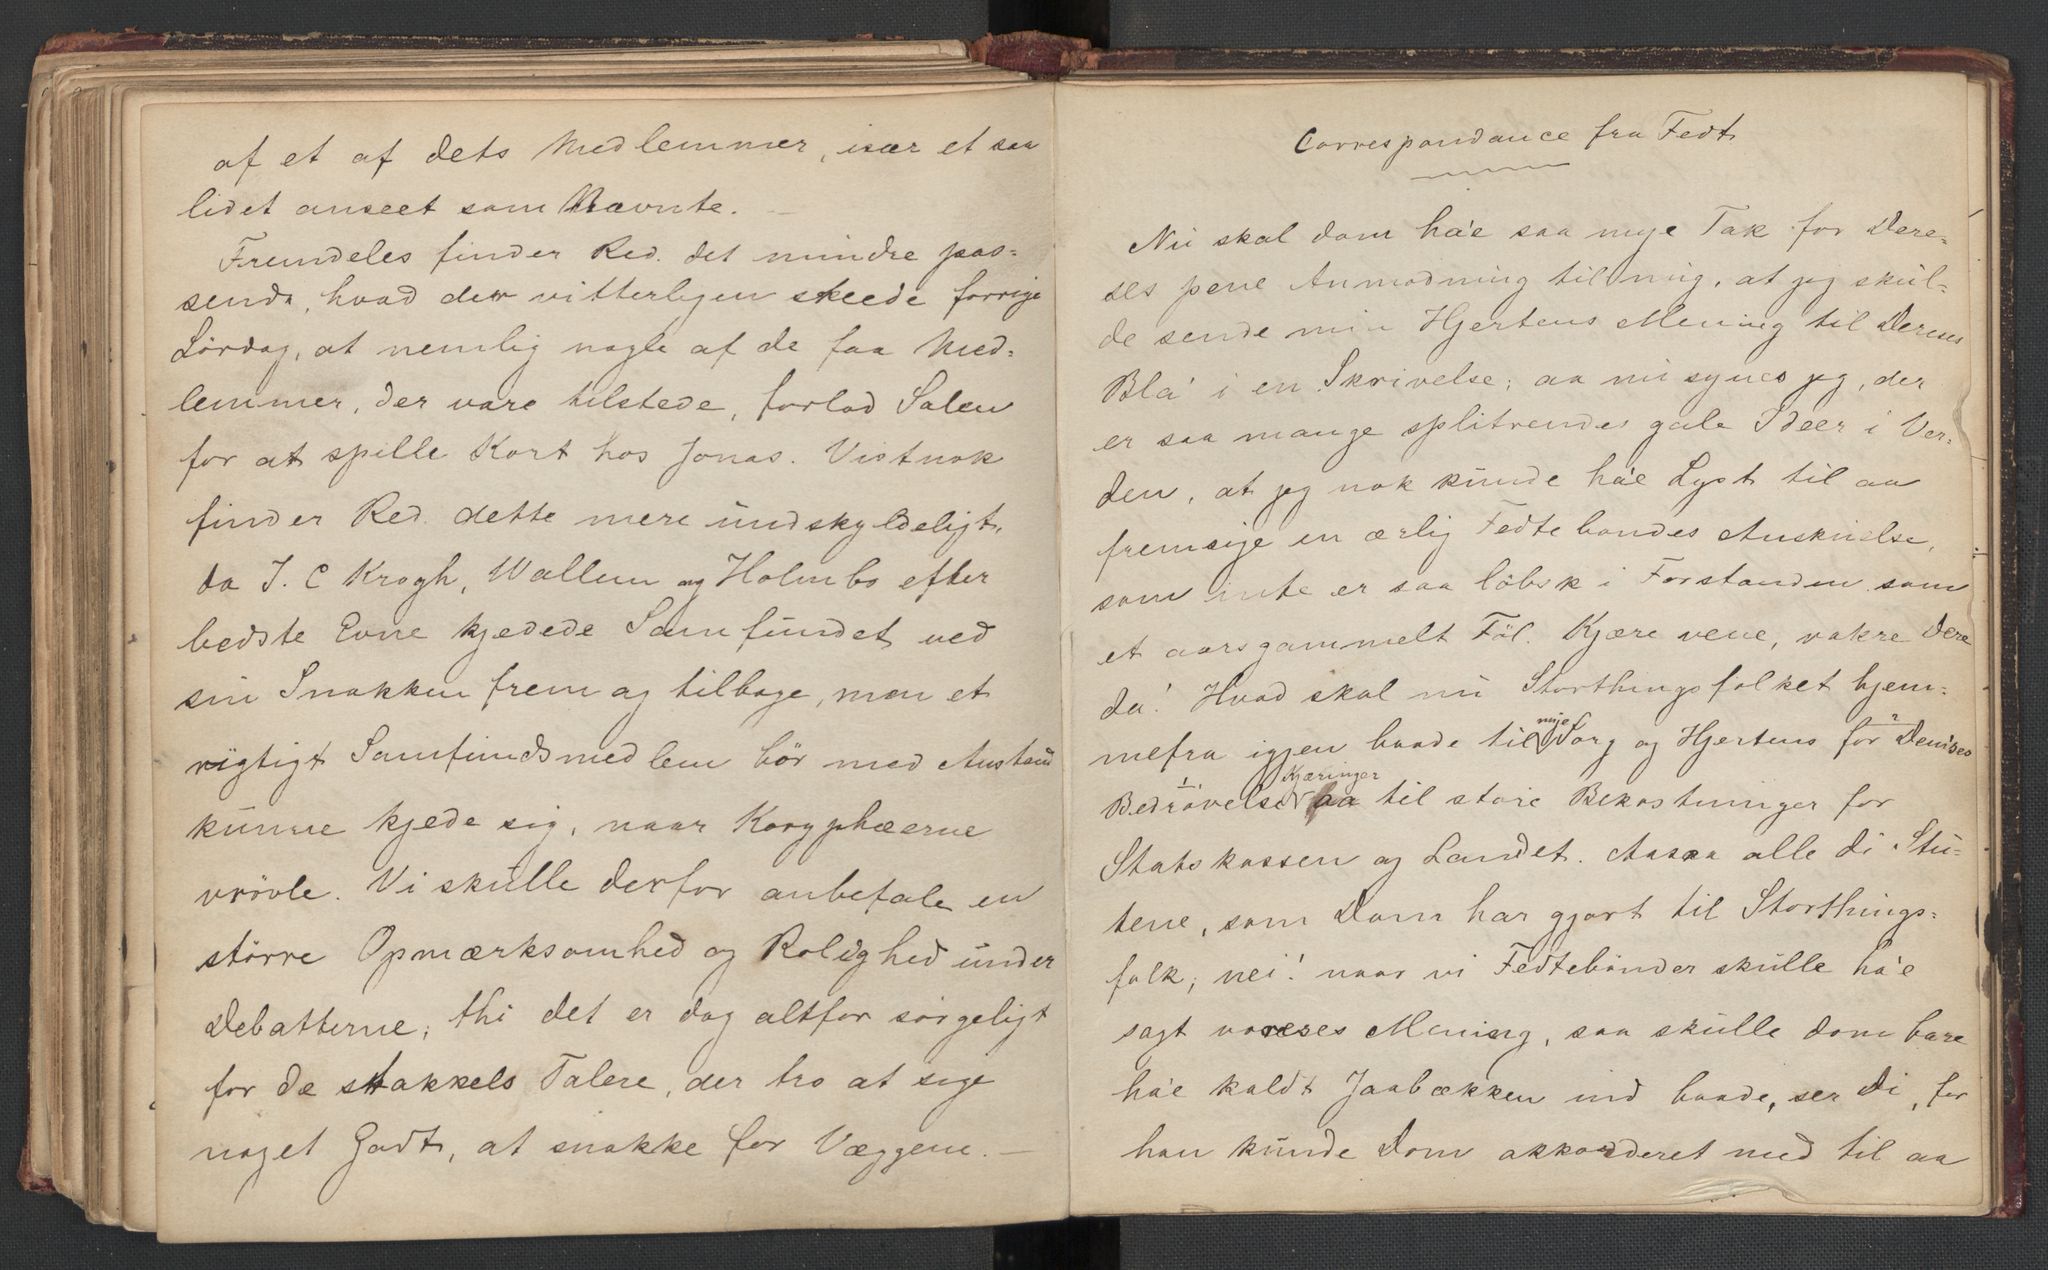 af et af dets Medlemmer, især et saa
lidet anseet som Nævnte. —
Fremdeles finder Red. det mindre pas-
sende, hvad der vitterligen skeede forrige
Lørdag, at nemlig nogle af de faa Med-
lemmer, der vare tilstede, forlod Salen
for at spille Kort hos Jonas. Vistnok
finder Red. dette mere undskyldeligt,
da I. C Krogh, Wallem og Holmbo efter
bedste Evne kjedede Samfundet ved
sin Snakken frem og tilbage, men et
rigtigt Samfundsmedlem bör med Anstand
kunne kjede sig, naar Koryphæerne
vrövle. Vi skulle derfor anbefale en
större Opmærksomhed og Rolighed under
Debatterne; thi det er dog altfor sörgeligt
for de stakkels Talere, der tro at sige
noget Godt, at snakke for Væggene. —
Correspondance fra Fedt
Nu skal dom ha'e saa mye Tak for Dere-
ses pene Anmodning til mig, at jeg skul-
de sende min Hjertens Mening til Deres
Bla' i en Skrivelse; aa nu synes jeg, der
er saa mange splitrendes gale Ideer i Ver-
den, at jeg nok kunde ha'e Lyst til aa
fremsige en ærlig Fedtebondes Anskuelse,
som inte er saa löbsk i Forstanden som
et aarsgammelt Föl. Kjære vene, vakre Dere
da! Hvad skal nu Storthingsfolket hjem-
mefra igjen baade til mye Sorg og Hjertens for Demses
Bedrövelse Kjæringer aa til store Bekostninger for
Statskassen og Landet. Aasaa alle di Stu-
tene, som Dom har gjort til Storthings-
folk; nei! naar vi Fedtebönder skulle ha'e
sagt voreses Mening, saa skulle dom bare
ha'e kaldt Jaabækken ind baade, ser Di, for
han kunde Dom akkorderet med til aa